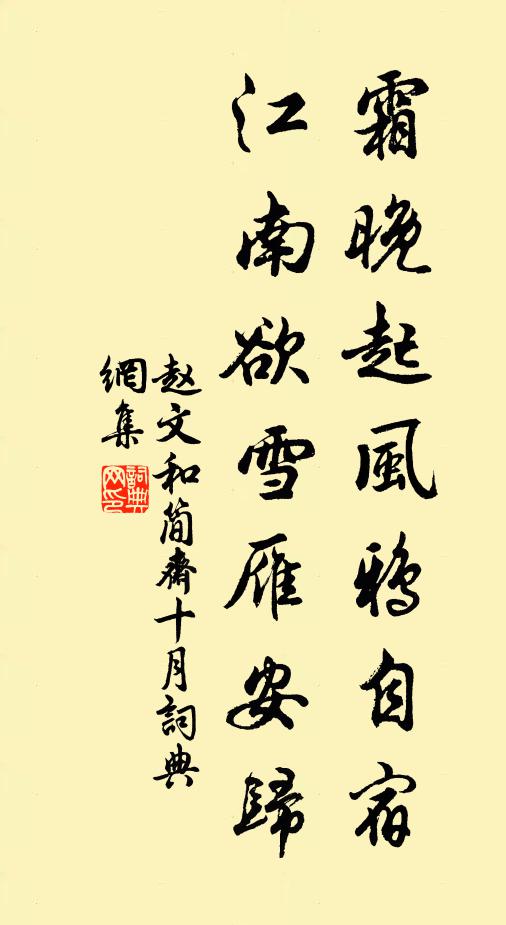 霜晚起風鴉自宿
江南欲雪雁安歸
赵文和简齋十月詞典
網集
詞典
网印